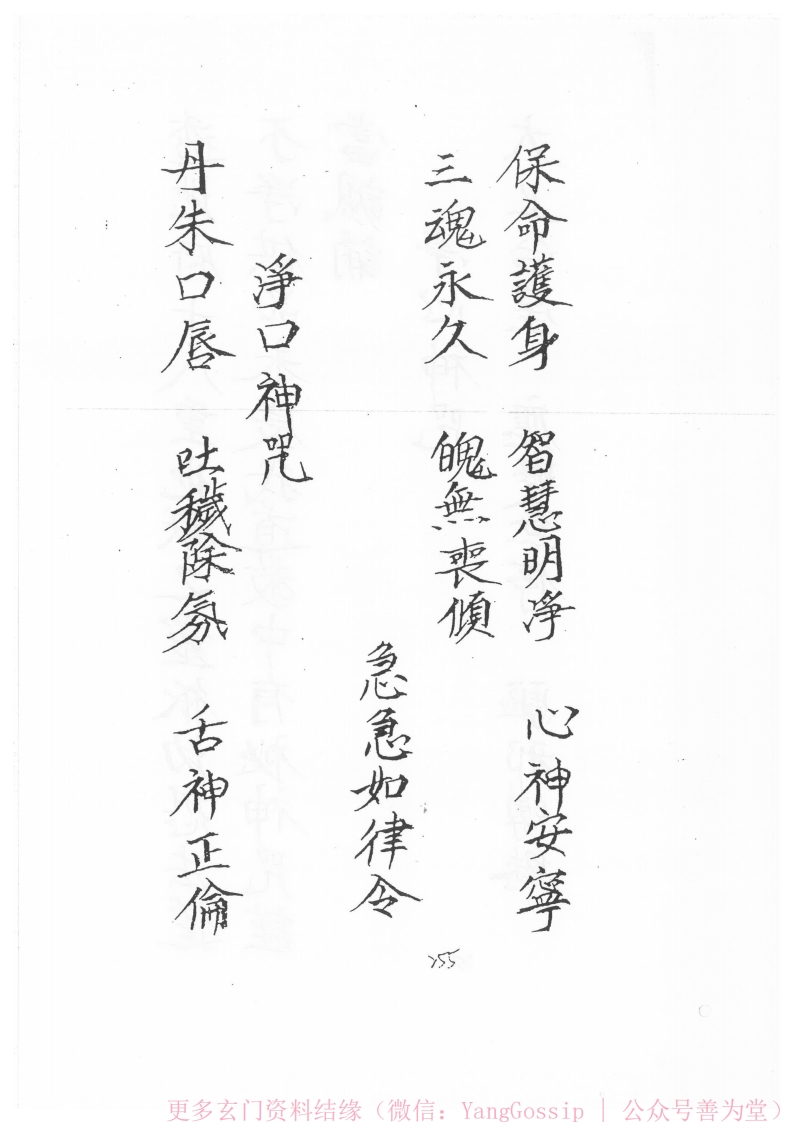 保命護身 智慧明净 心神安寧
三魂永久 魄無喪傾
急急如律令
淨口神咒
丹朱口唇 吐穢除氛 舌神正倫
255
更多玄门资料结缘（微信：YangGossip | 公众号善为堂）